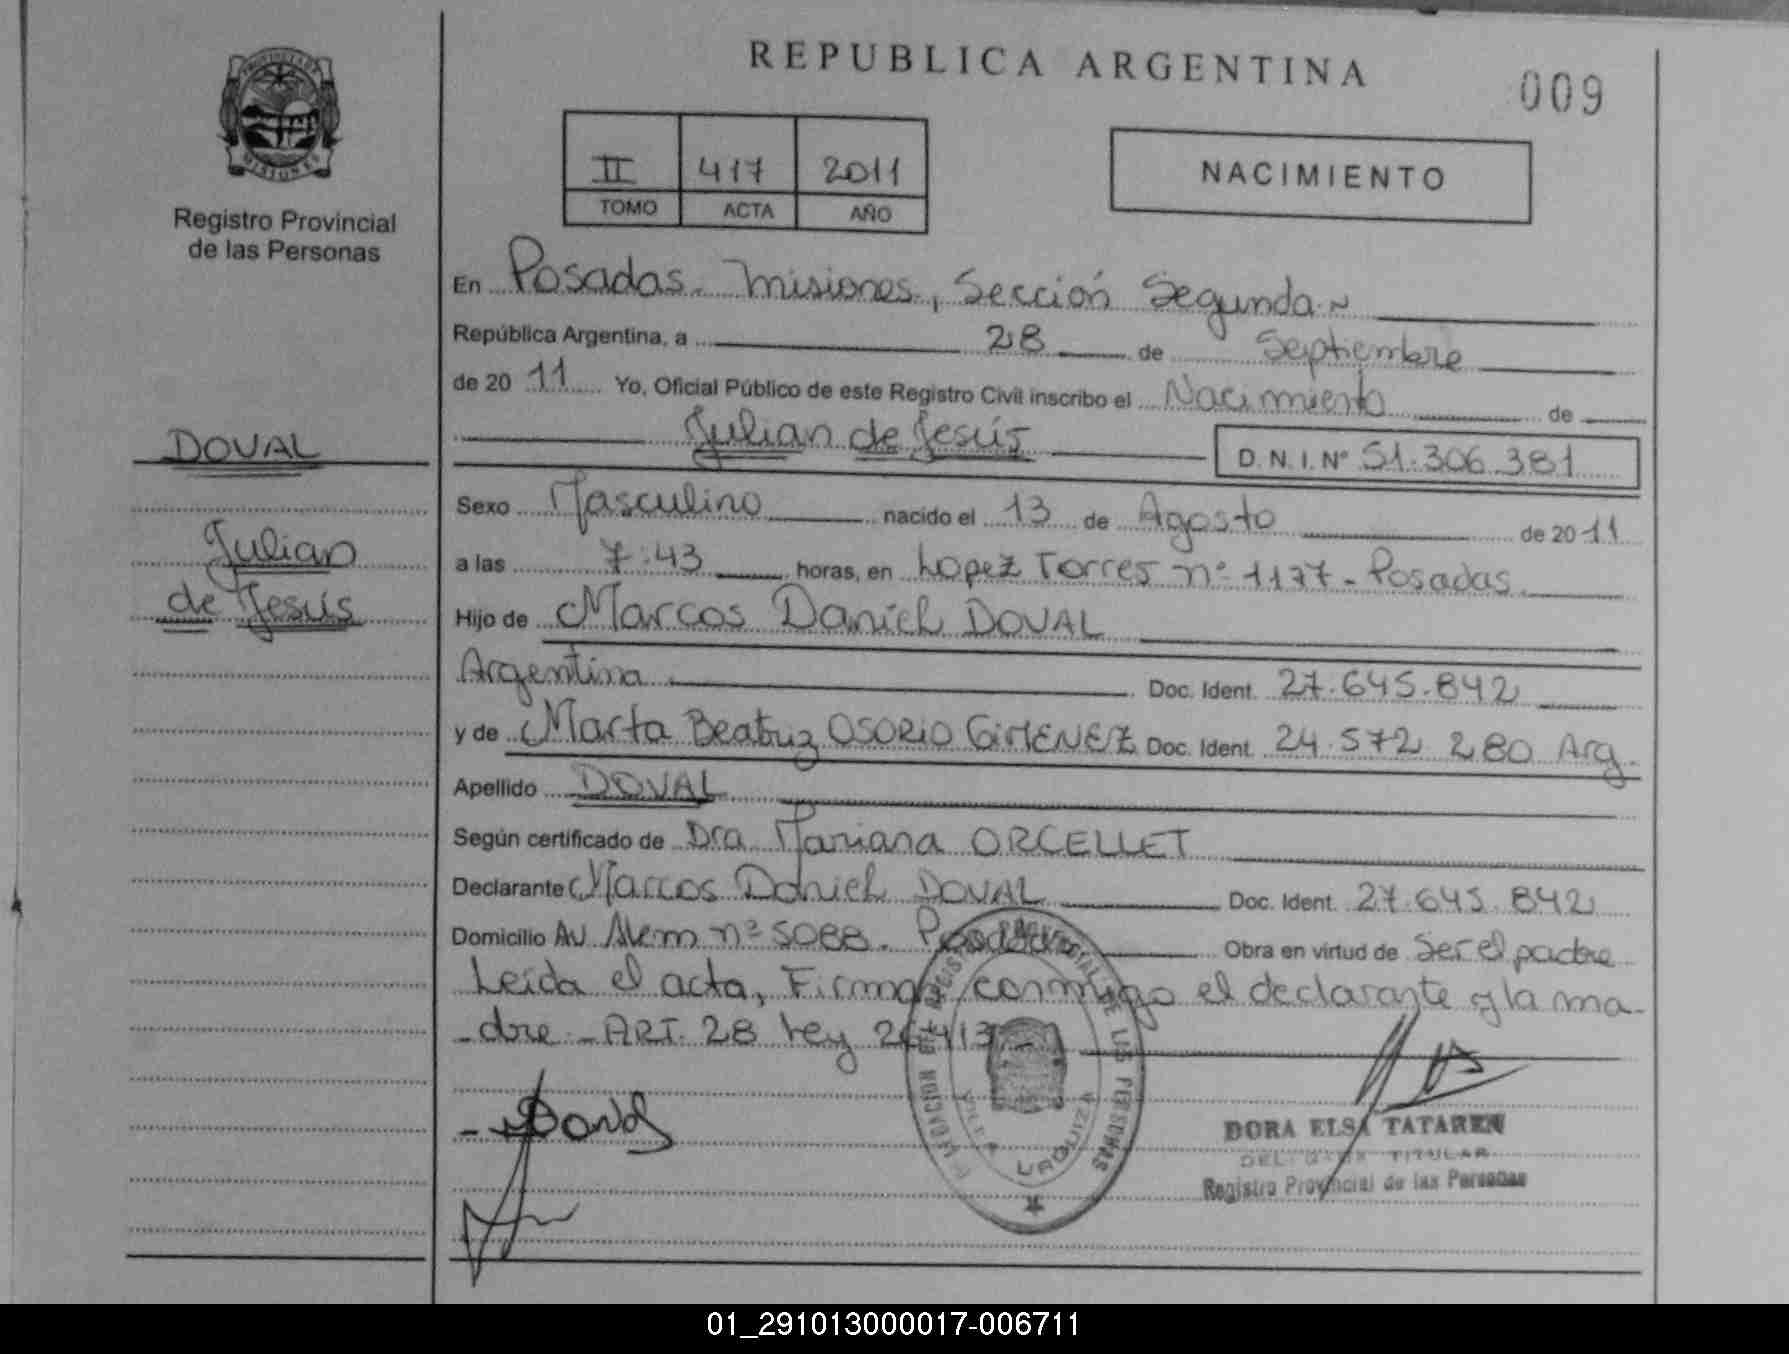 REPUBLICA ARGENTINA
009
PROVINCIA DE
MISIONES
Registro Provincial
de las Personas
II 417 2011
TOMO ACTA AÑO
NACIMIENTO
En Posadas. Misiones, Sección Segunda.~
República Argentina, a 28 de Septiembre
de 20 11 Yo, Oficial Público de este Registro Civil inscribo el Nacimiento de
Julian de Jesús D.N.I. Nº 51.306.381
DOVAL
Julian
de Jesús
Sexo Masculino nacido el 13 de Agosto de 20 11
a las 7:43 horas, en Lopez Torres nº 1177 - Posadas
Hijo de Marcos Daniel DOVAL
Argentina Doc. Ident. 27.645.842
y de Marta Beatriz OSORIO GIMENEZ Doc. Ident. 24.572.280 Arg.
Apellido DOVAL
Según certificado de Dra Mariana ORCELLET
Declarante Marcos Daniel DOVAL Doc. Ident. 27.645.842
Domicilio Av Alem nº 5088. Posadas Obra en virtud de Ser el padre
Leida el acta, Firman conmigo el declarante y la ma-
-dre - ART. 28 Ley 26413 -
Doval
DELEGACION DEL REGISTRO PROVINCIAL DE LAS PERSONAS
VILLA URQUIZA
DORA ELSA TATAREN
DELEGADA TITULAR
Registro Provincial de las Personas
01_291013000017-006711